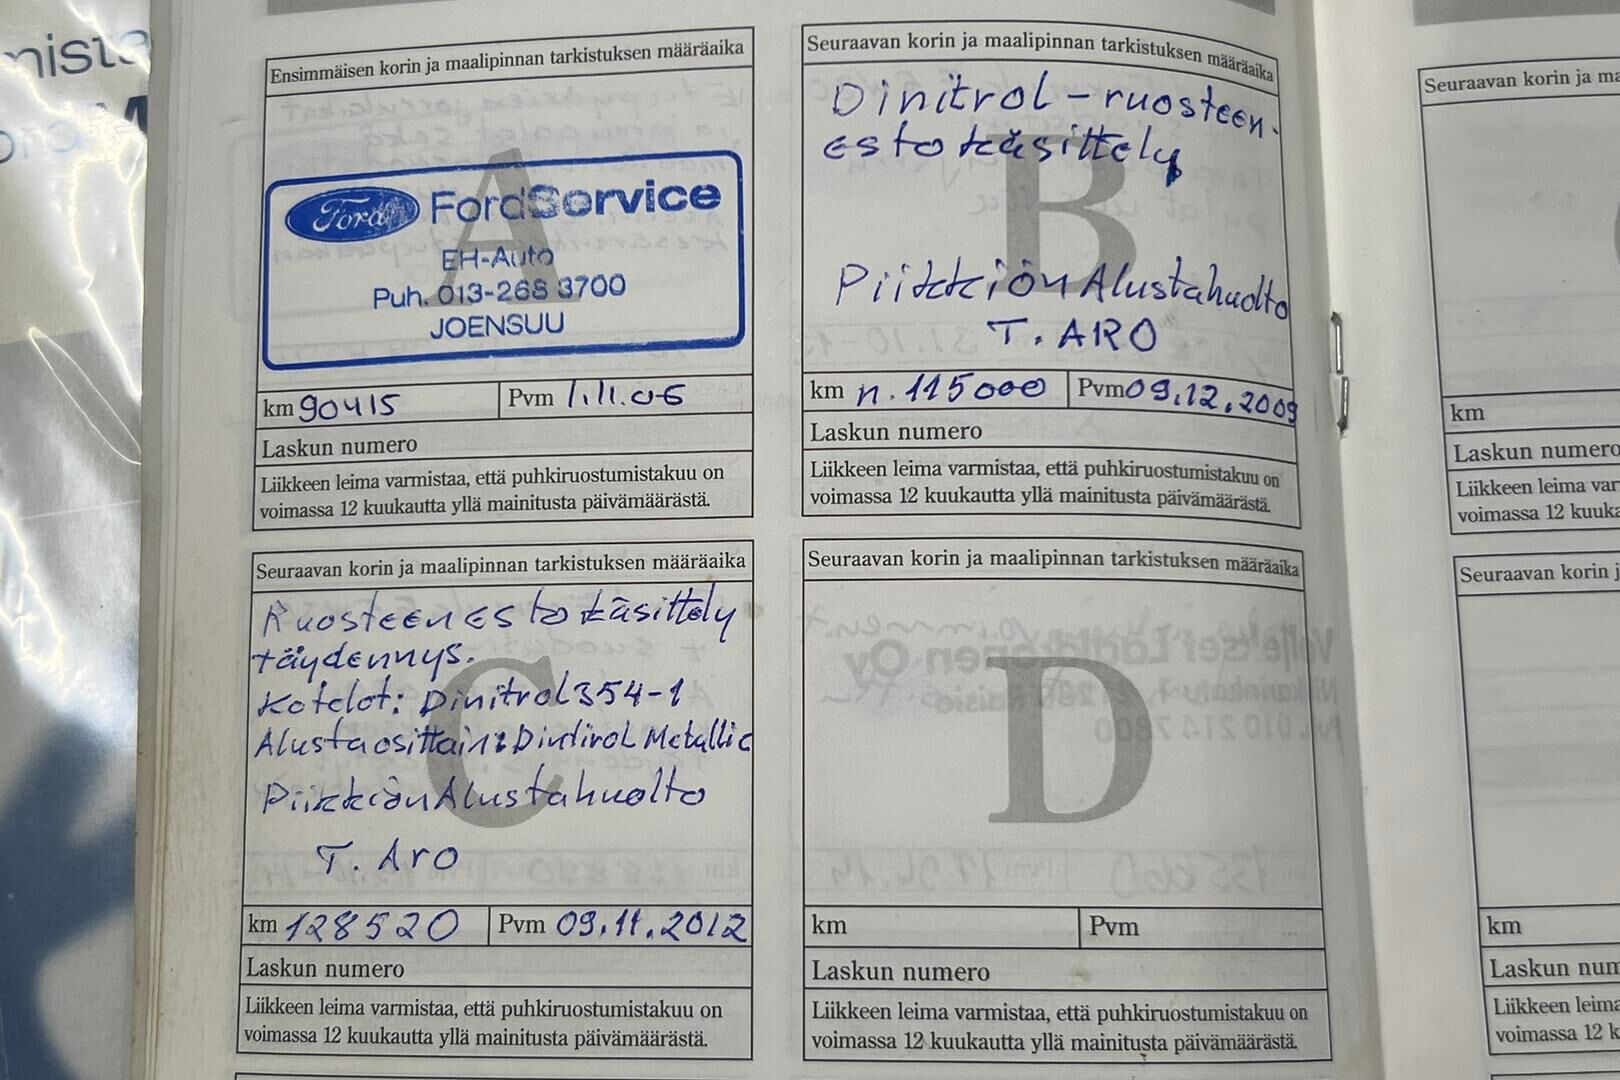 Ensimmäisen korin ja maalipinnan tarkistuksen määräaika
A
Ford FordService
EH-Auto
Puh. 013-268 3700
JOENSUU
km 90415 Pvm 1.11.06
Laskun numero
Liikkeen leima varmistaa, että puhkiruostumistakuu on
voimassa 12 kuukautta yllä mainitusta päivämäärästä.
Seuraavan korin ja maalipinnan tarkistuksen määräaika
B
Dinitrol-ruosteen-
estokäsittely
Piikkiön Alustahuolto
T. ARO
km n. 115000 Pvm 09.12.2009
Laskun numero
Liikkeen leima varmistaa, että puhkiruostumistakuu on
voimassa 12 kuukautta yllä mainitusta päivämäärästä.
Seuraavan korin ja maalipinnan tarkistuksen määräaika
C
Ruosteenestokäsittely
täydennys.
Kotelot: Dinitrol 354-1
Alusta osittain: Dintirol Metallic
Piikkiön Alustahuolto
T. Aro
km 128520 Pvm 09.11.2012
Laskun numero
Liikkeen leima varmistaa, että puhkiruostumistakuu on
voimassa 12 kuukautta yllä mainitusta päivämäärästä.
Seuraavan korin ja maalipinnan tarkistuksen määräaika
D
km Pvm
Laskun numero
Liikkeen leima varmistaa, että puhkiruostumistakuu on
voimassa 12 kuukautta yllä mainitusta päivämäärästä.
Seuraavan korin ja
km
Laskun numero
Liikkeen leima
voimassa 12
Seuraavan korin
km
Laskun
Liikkeen leima
voimassa 12